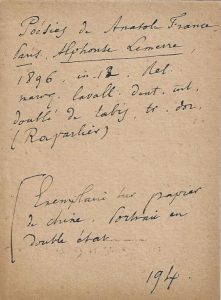 Poésies de Anatole France
Paris, Alphonse Lemerre,
1896. in 12. Rel.
maroq. lavall. dent. int.
doublé de tabis, tr. dor.
(Raparlier)
Exemplaire sur papier
de chine. Portrait en
double état.
194.